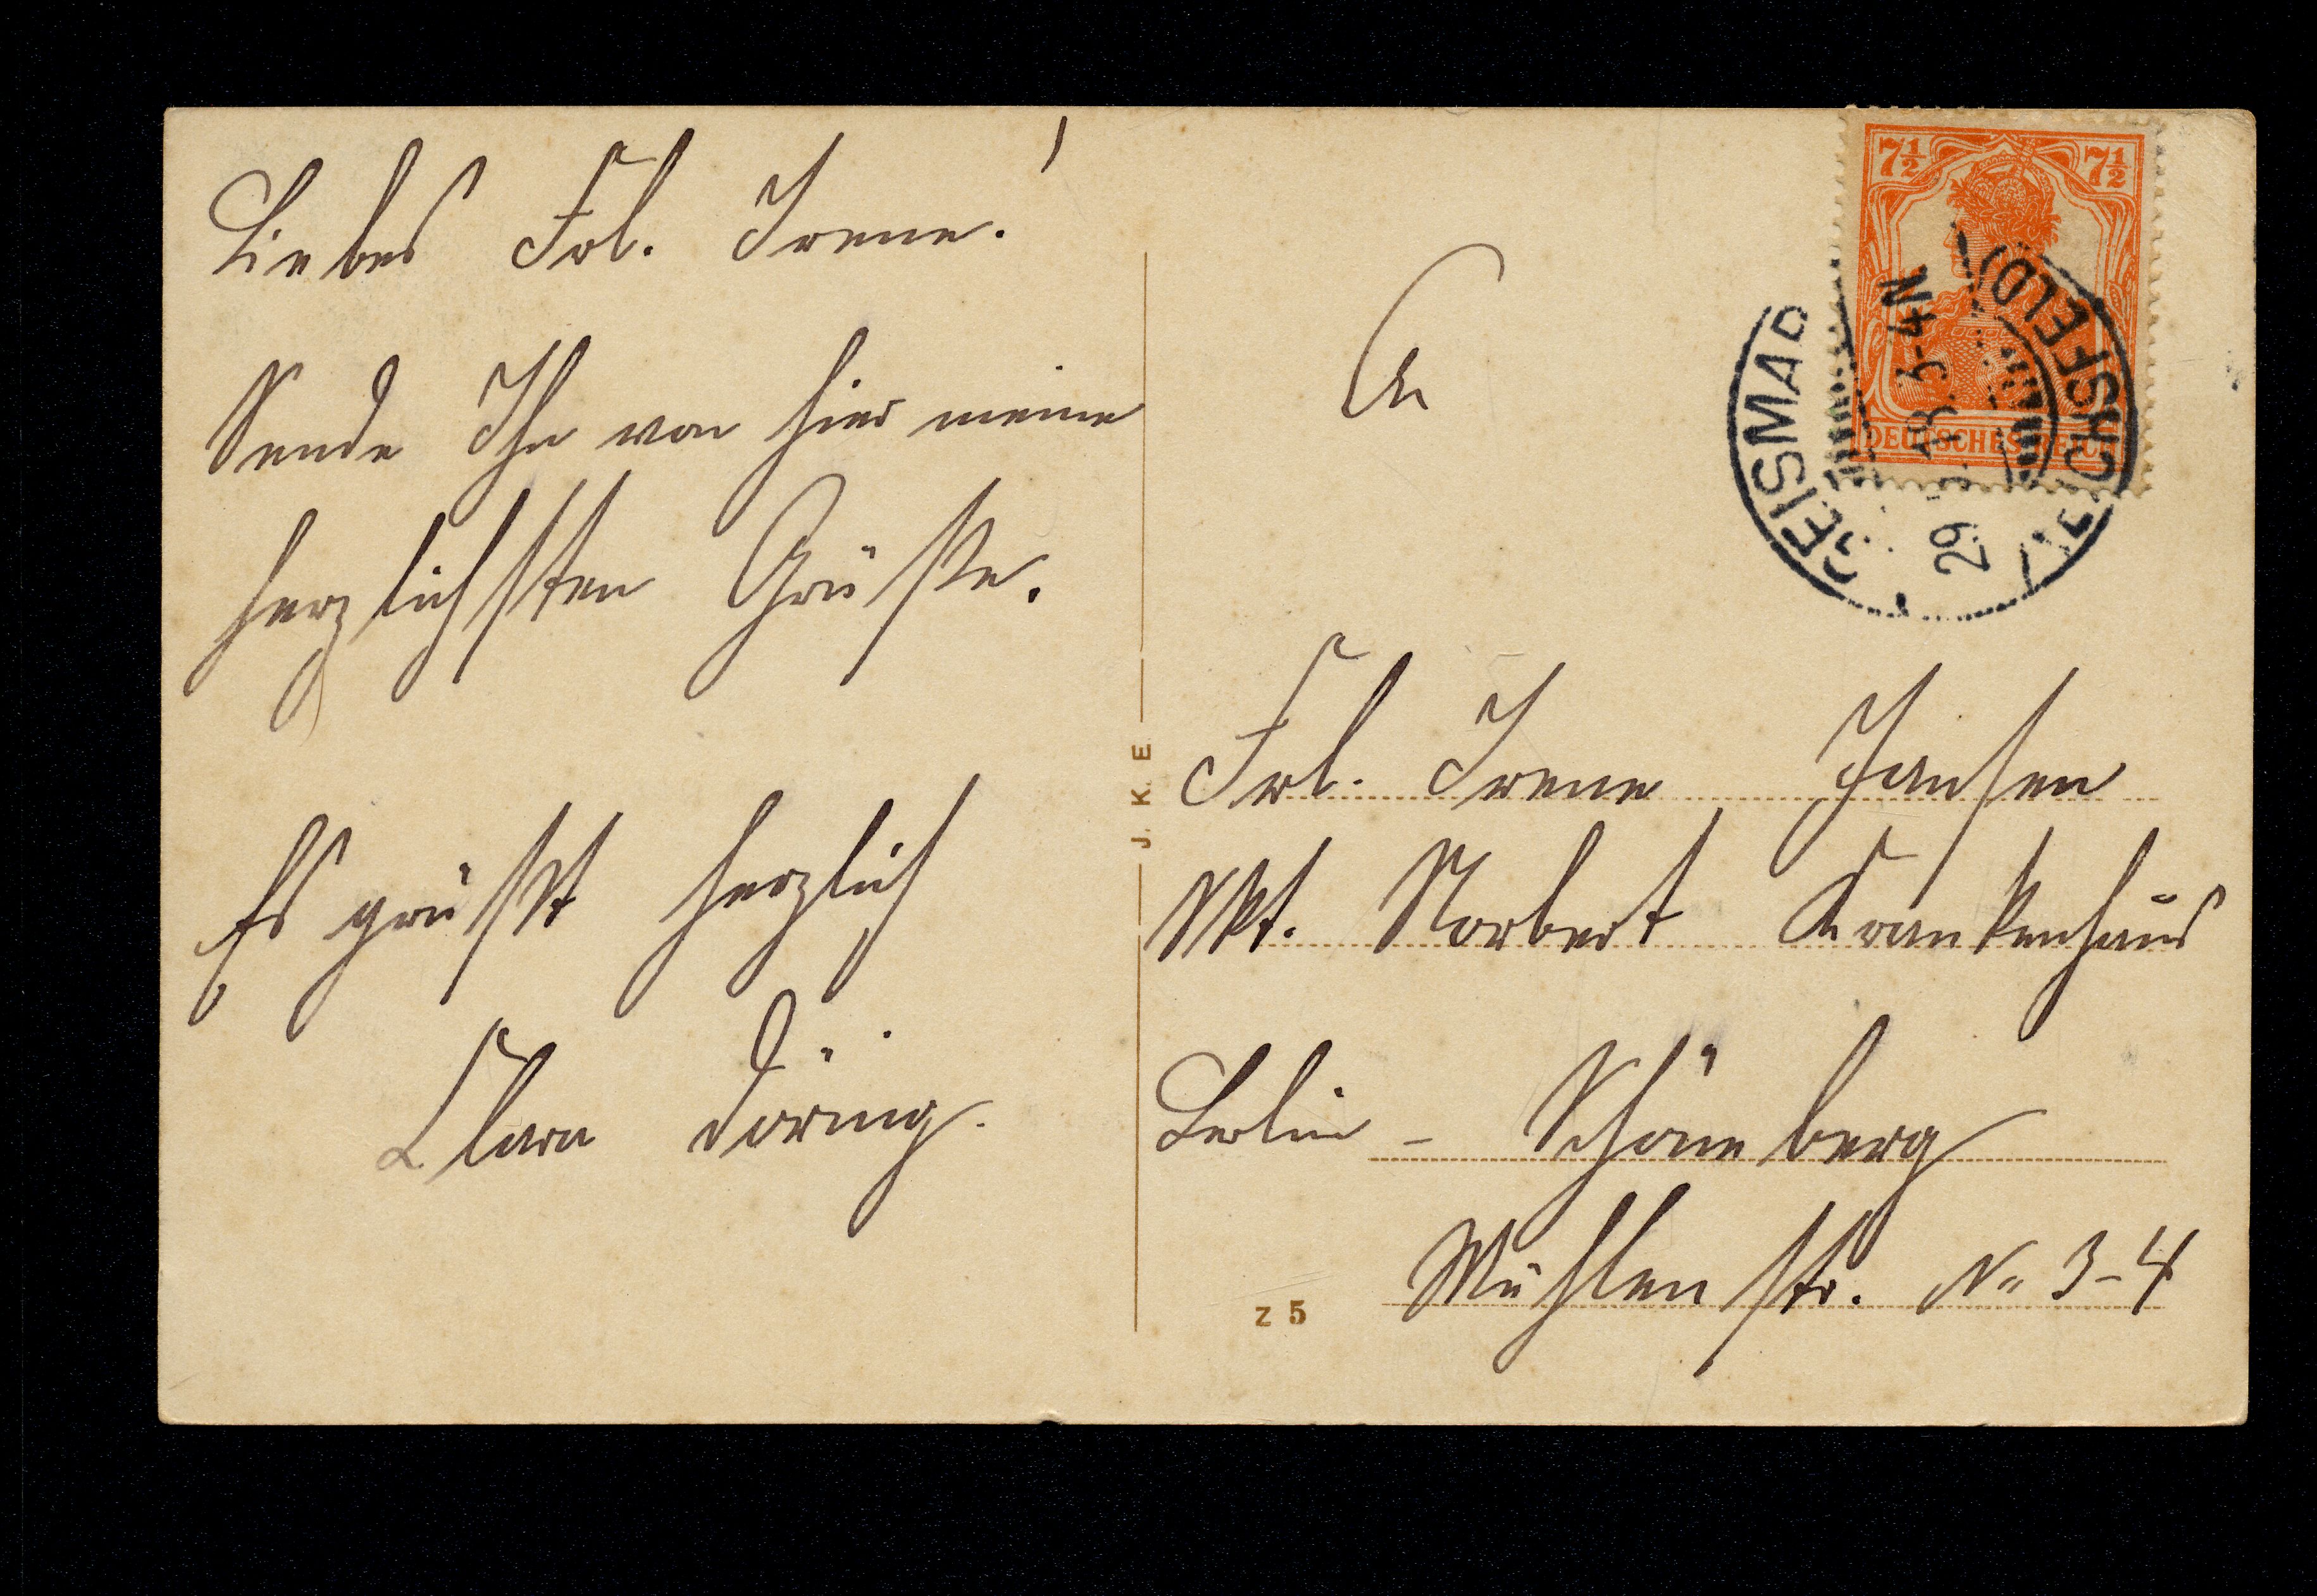 Liebes Frl. Irene!
Sende Ihn von hier meine
herzlichsten Grüße.
Es grüßt herzlich
Clara Döring.
J. K. E
An
Frl. Irene Jansen
Skt. Norbert Krankenhaus
Berlin - Schöneberg
Mühlenstr. No 3-4
Z 5
7½ 7½
DEUTSCHES REICH
GEISMAR
(EICHSFELD)
29. 18. 3-4N.